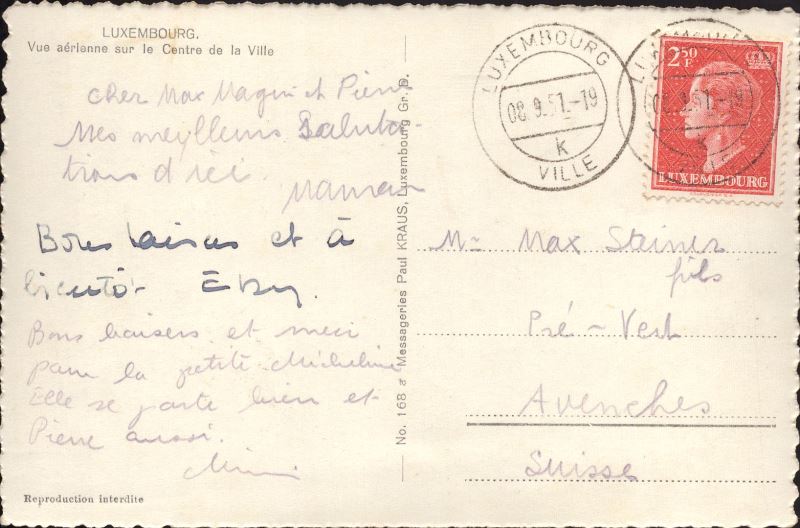 LUXEMBOURG.
Vue aérienne sur le Centre de la Ville
Cher Max Magui et Pierre
Mes meylleurs Saluta-
tions d'ici
Maman
Bons baisers et à
bientôt
Bons baisers et merci
pour la petite Micheline
Elle se porte bien et
Pierre aussi.
Reproduction interdite
No. 168 a Messageries Paul KRAUS, Luxembourg Gr. D.
LUXEMBOURG
08.9.51.-19
k
VILLE
LUXEMBOURG
08.9.51.-19
k
VILLE
2 50 F
LUXEMBOURG
Mr Max Steiner
fils
Pré-Vert
Avenches
Suisse